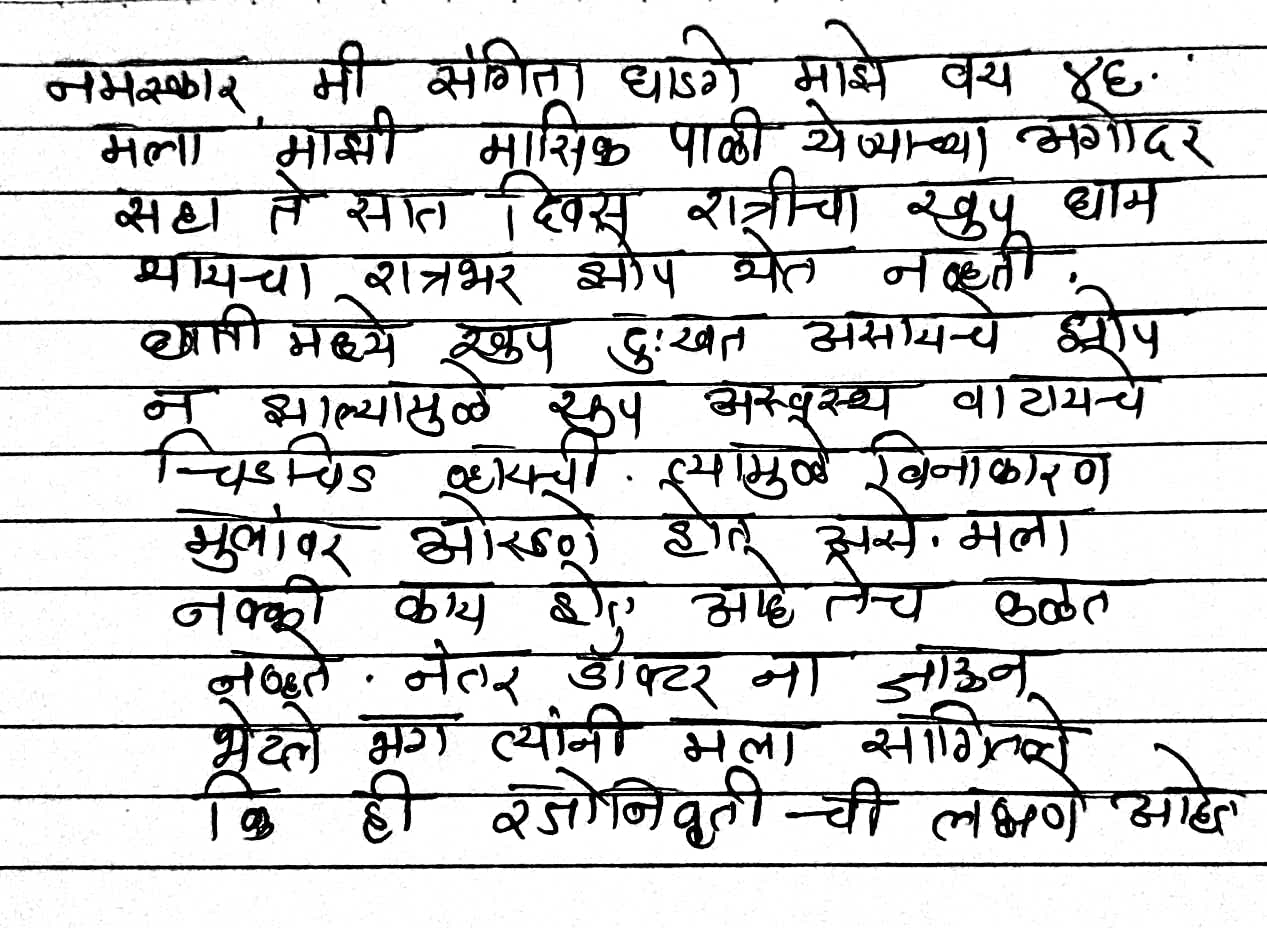 नमस्कार, मी संगिता घाडगे माझे वय ४६.
मला माझी मासिक पाळी येण्याच्या अगोदर
सहा ते सात दिवस रात्रीचा खुप घाम
यायचा रात्रभर झोप येत नव्हती.
छाती मध्ये खुप दुःखत असायचे झोप
न झाल्यामुळे खुप अस्वस्थ वाटायचे
चिडचिड व्हायची. त्यामुळे विनाकारण
मुलांवर ओरडणे होत असे. मला
नक्की काय होत आहे तेच कळत
नव्हते. नंतर डॉक्टर ना जाऊन
भेटले मग त्यांनी मला सांगितले
कि ही रजोनिवृती ची लक्षणे आहेत